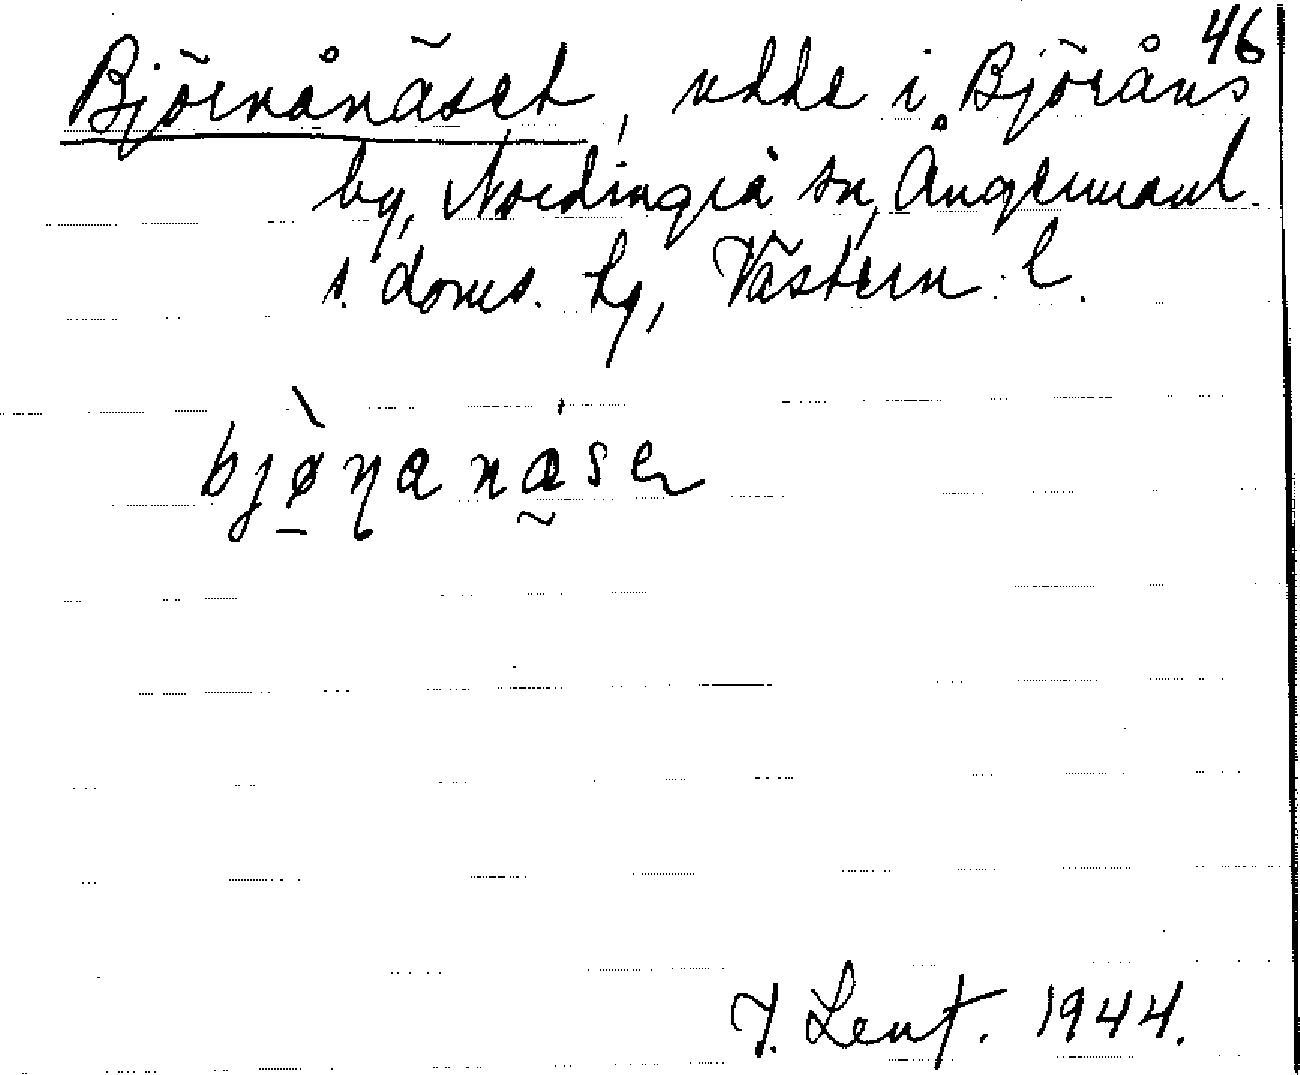 46
Björnånäset, udde i Björåns
by, Nordingrå sn, Ångermanl.
s. doms. hg, Västern. l.
bjø̀ṇanásen
J. Lent. 1944.